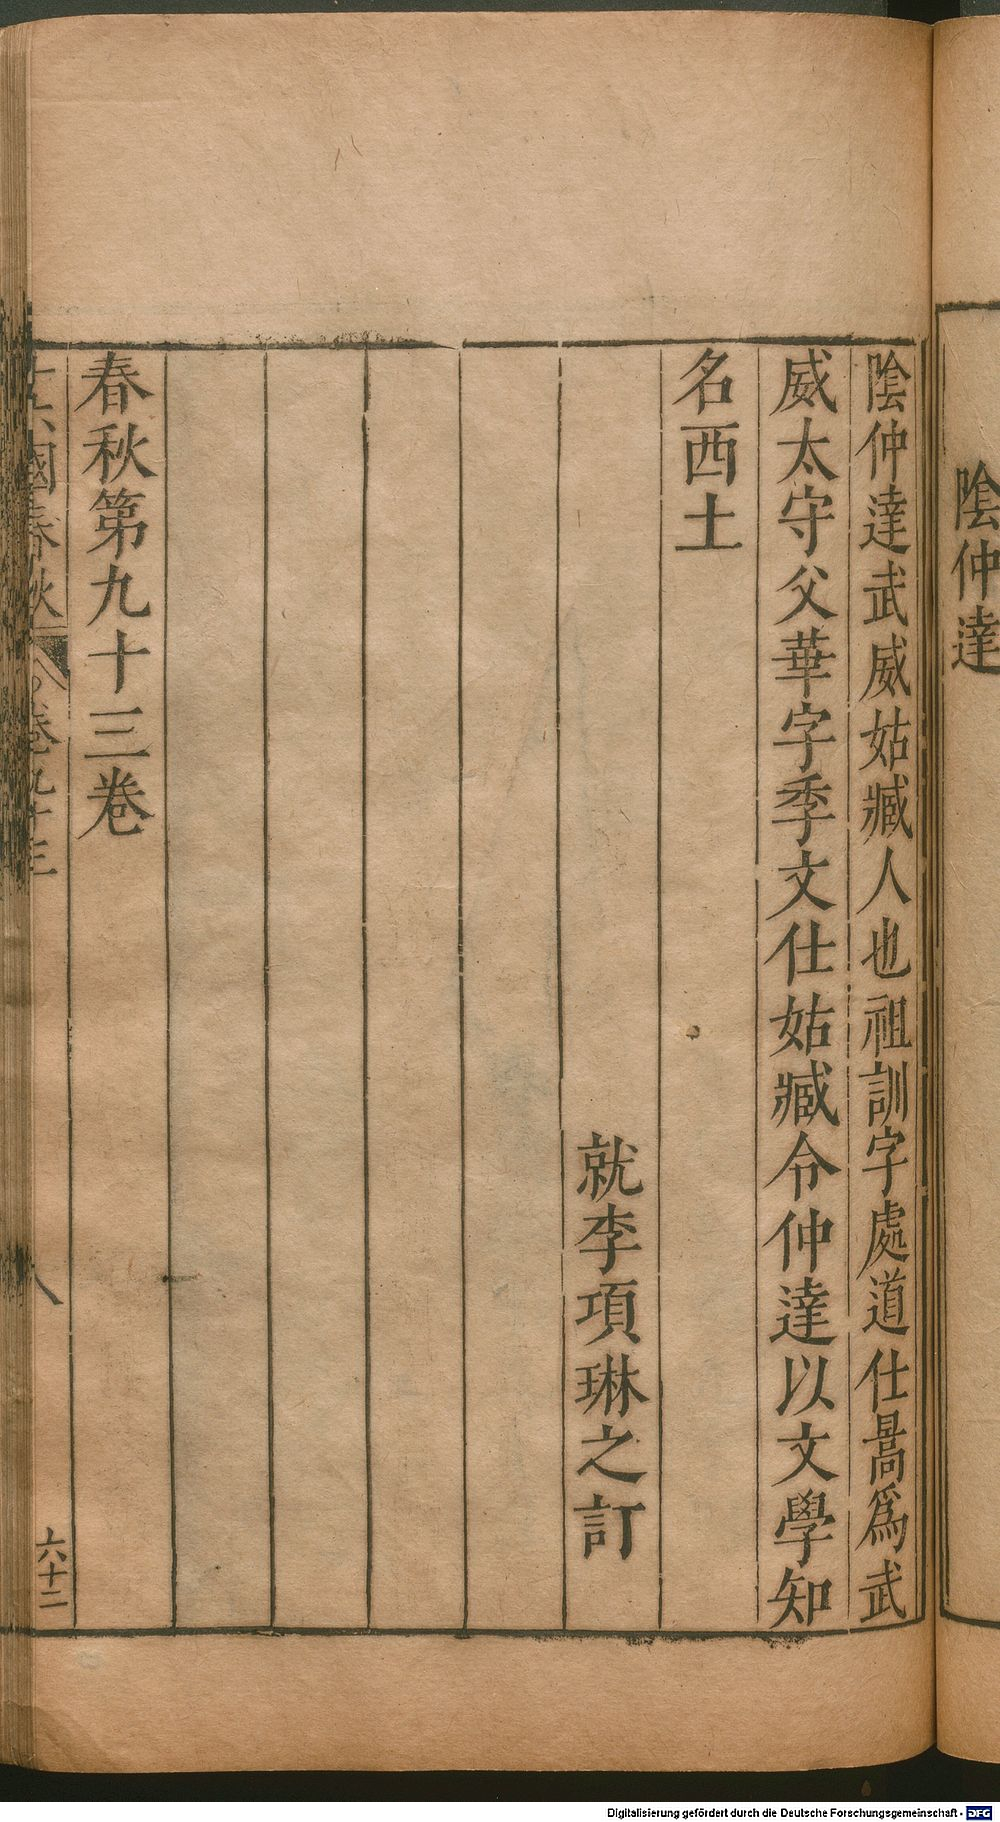 陰仲達
陰仲達武威姑臧人也祖訓字處道仕暠爲武
威太守父華字季文仕姑臧令仲達以文學知
名西土
就李項琳之訂
春秋第九十三卷
十六國春秋 卷九十三 八 六十二
Digitalisierung gefördert durch die Deutsche Forschungsgemeinschaft - DFG